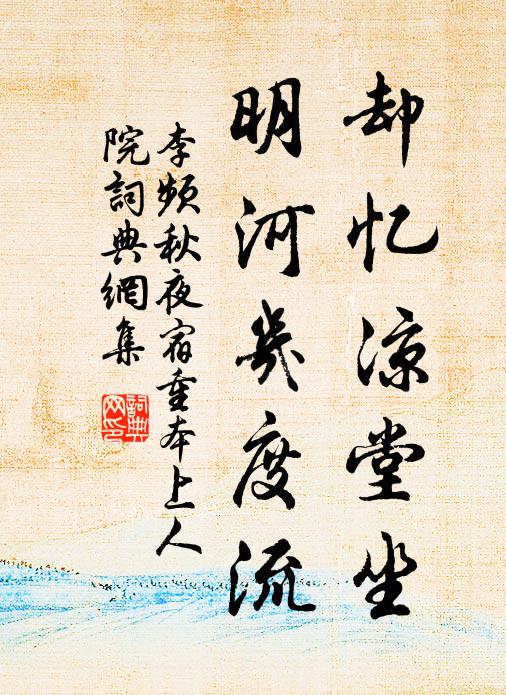 却忆凉堂坐
明河几度流
李频秋夜宿重本上人
院词典網集
詞典网印